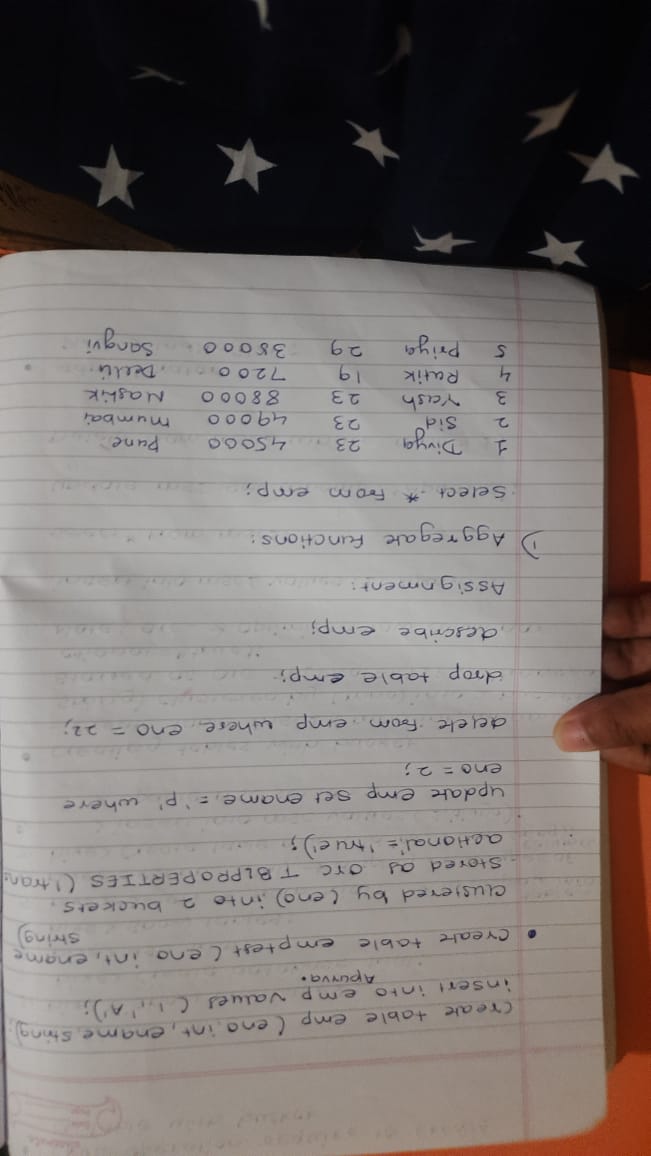 create table emp (eno int, ename string);
insert into emp values (1,'A');
Apurva.
create table emptest (eno int, ename
string)
clustered by (eno) into 2 buckets
stored as orc TBLPROPERTIES ('tran
actional'='true');
update emp set ename='p' where
eno = 2;
delete from emp where eno = 22;
drop table emp;
describe emp;
Assignment:
1) Aggregate functions:
select * from emp;
1 Divya 23 45000 Pune
2 Sid 23 49000 Mumbai
3 Yash 23 88000 Nashik
4 Ratik 19 7200 Delhi
5 Priya 29 38000 Sangvi